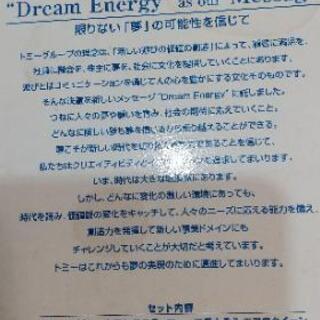 "Dream Energy" as our Message
限りない「夢」の可能性を信じて
トミーグループの理念は、「新しい遊びの価値の創造」によって、顧客に満足を、
社員に機会を、株主に夢を、社会に文化を提供することにあります。
遊びとはコミュニケーションを通じて人の心を豊かにする文化そのものです。
そんな決意を新しいメッセージ"Dream Energy"に託しました。
つねに人々の夢や願いを育み、社会の期待に応えていくこと。
どんなに険しい道も夢を信じるから乗り越えることができる。
夢こそが新しい時代を切り
であることを信じて、
私たちはクリエイティビティと
を追求してまいります。
いま、時代は大きな
にあります。
しかし、どんなに変化の激しい環境にあっても、
時代を読み、価値観の変化をキャッチして、人々のニーズに応える能力を備え、
創造力を発揮して新しい事業ドメインにも
チャレンジしていくことが大切だと考えています。
トミーはこれからも夢の実現のために邁進してまいります。
セット内容